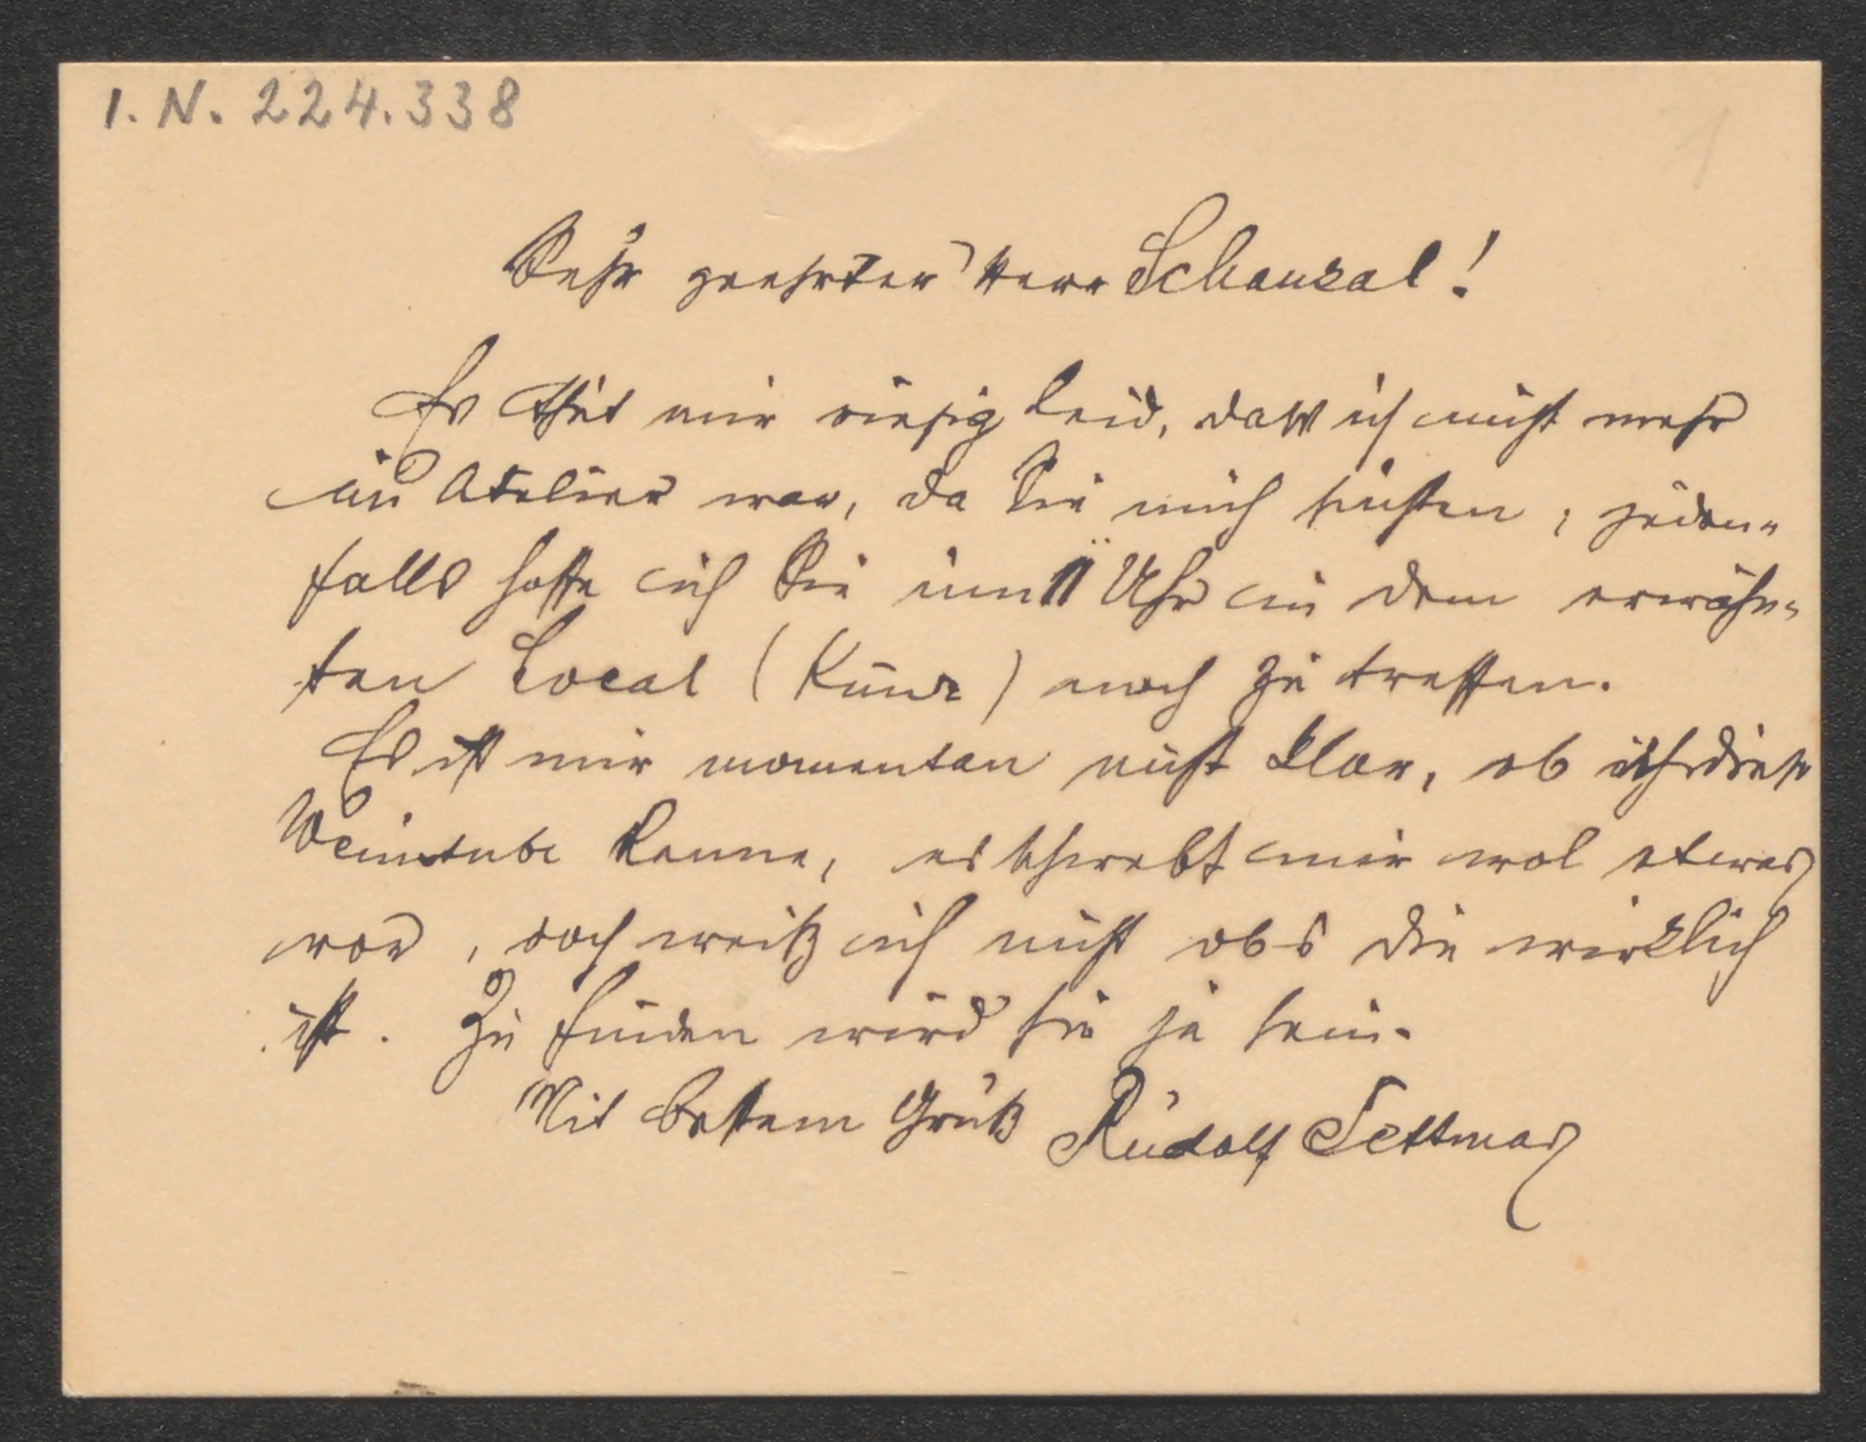 I. N. 224.338
1
Sehr geehrter Herr Schaukal!
Es thut mir riesig leid, dass ich nicht mehr
im Atelier war, da Sie mich suchten; jeden-
falls hoffe ich Sie um 11 Uhr in dem erwähn-
ten Local () noch zu treffen.
Es ist mir momentan nicht klar, ob ich diese
Weinstube kenne, es schwebt mir wol etwas
vor, doch weiß ich nicht obs die wirklich
ist. Zu finden wird sie ja sein.
Mit bestem Gruß Rudolf Jettmar